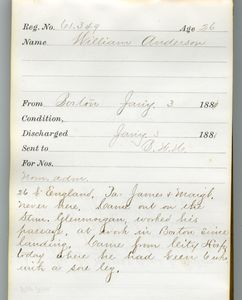 Reg. No. 61.349 Age 26
Name William Anderson
From Boston Jany 3 188
Condition,
Discharged Jany 3 188
Sent to
For Nos.
Nom. adm.
26 S England. Fa. James & Margt.
never here. Came out on the
Stmr. Glenmorgan, worked his
passage, at work in Boston since
landing. Came from City Hosp.
today where he had been 6 wks
with a sore leg.